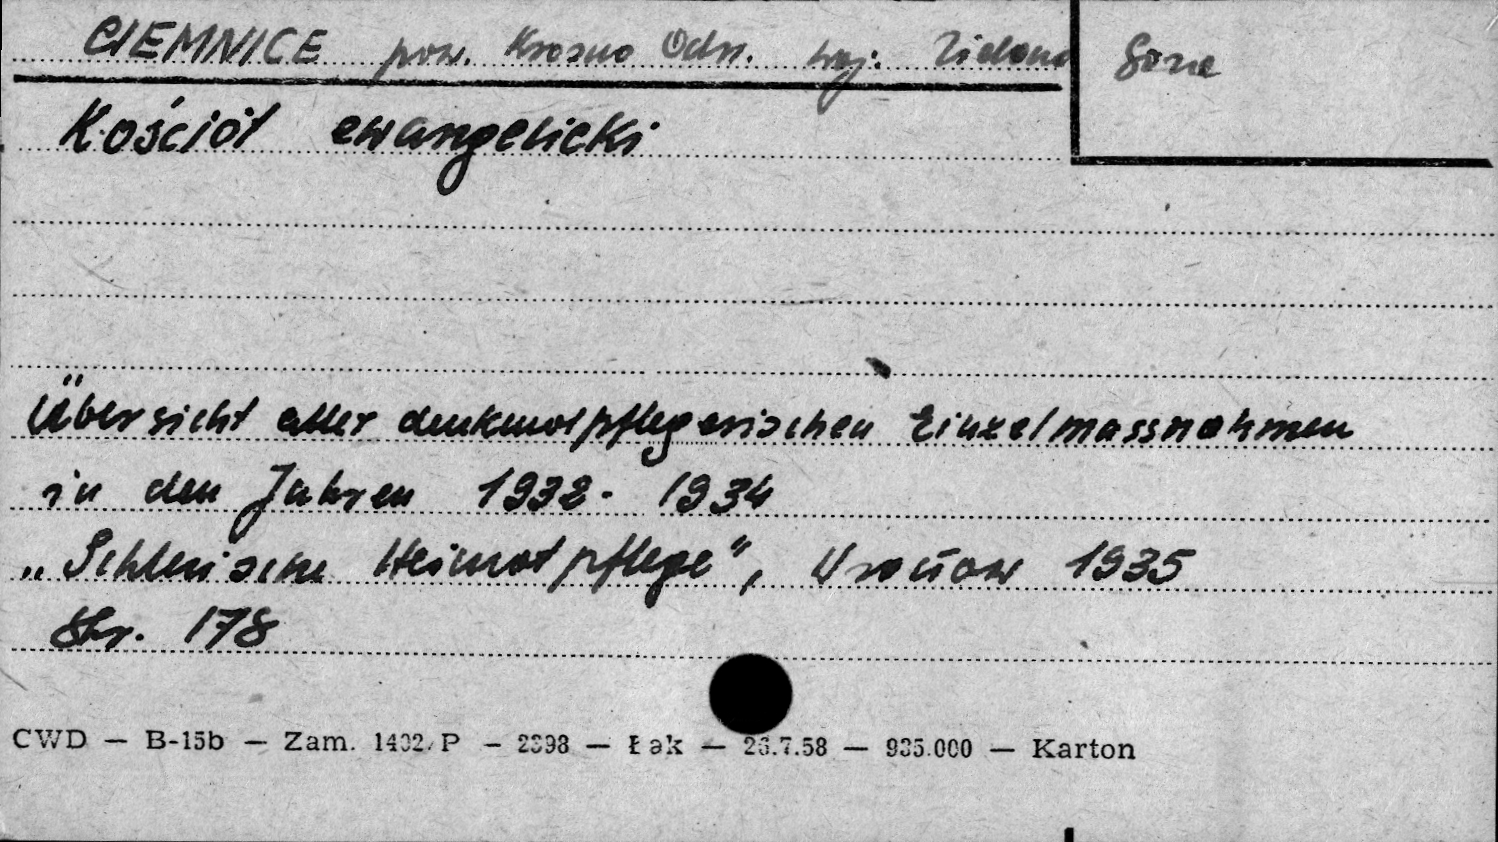 CIEMNICE pow. Krosno Odrz. woj. Zielona Góra
Kościół ewangelicki
Übersicht aller denkmalpflegerischen Einzelmassnahmen
in den Jahren 1932 - 1934
„Schlesische Heimatpflege", Wrocław 1935
Str. 178
CWD — B-15b — Zam. 1402/P — 2398 — Łąk — 26.7.58 — 935.000 — Karton